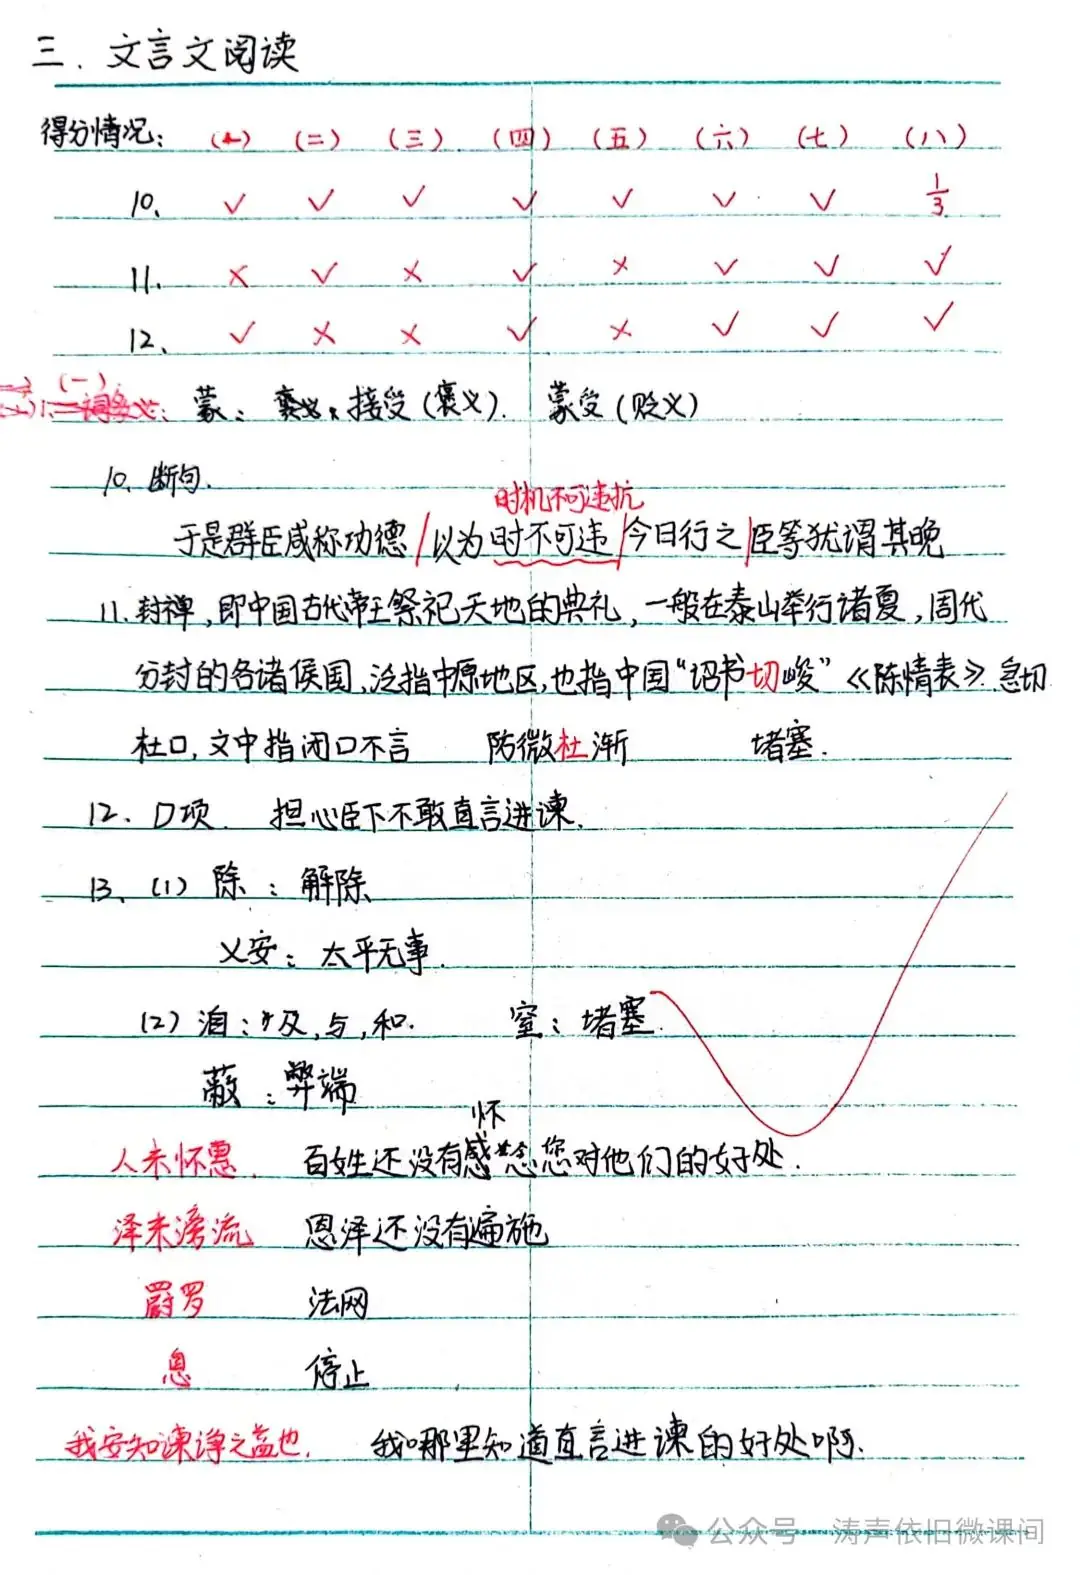 三.文言文阅读
得分情况: (一) (二) (三) (四) (五) (六) (七) (八)
10. ✓ ✓ ✓ ✓ ✓ ✓ ✓ 1/3
11. × ✓ × ✓ × ✓ ✓ ✓
12. ✓ × × ✓ × ✓ ✓ ✓
(一)
蒙: 接受(褒义). 蒙受(贬义)
10. 断句.
时机不可违抗
于是群臣咸称功德/以为时不可违/今日行之/臣等犹谓其晚
11. 封禅,即中国古代帝王祭祀天地的典礼,一般在泰山举行诸夏,周代
分封的各诸侯国,泛指中原地区,也指中国“诏书切峻”《陈情表》急切
杜口,文中指闭口不言 防微杜渐 堵塞.
12. D项. 担心臣下不敢直言进谏.
13. (1) 除: 解除
乂安: 太平无事.
(2) 洎: 及,与,和. 窒: 堵塞.
蔽: 弊端
怀
人未怀惠. 百姓还没有感念您对他们的好处.
泽未滂流 恩泽还没有遍施
罻罗 法网
息 停止
我安知谏诤之益也. 我哪里知道直言进谏的好处啊.
公众号 涛声依旧微课间